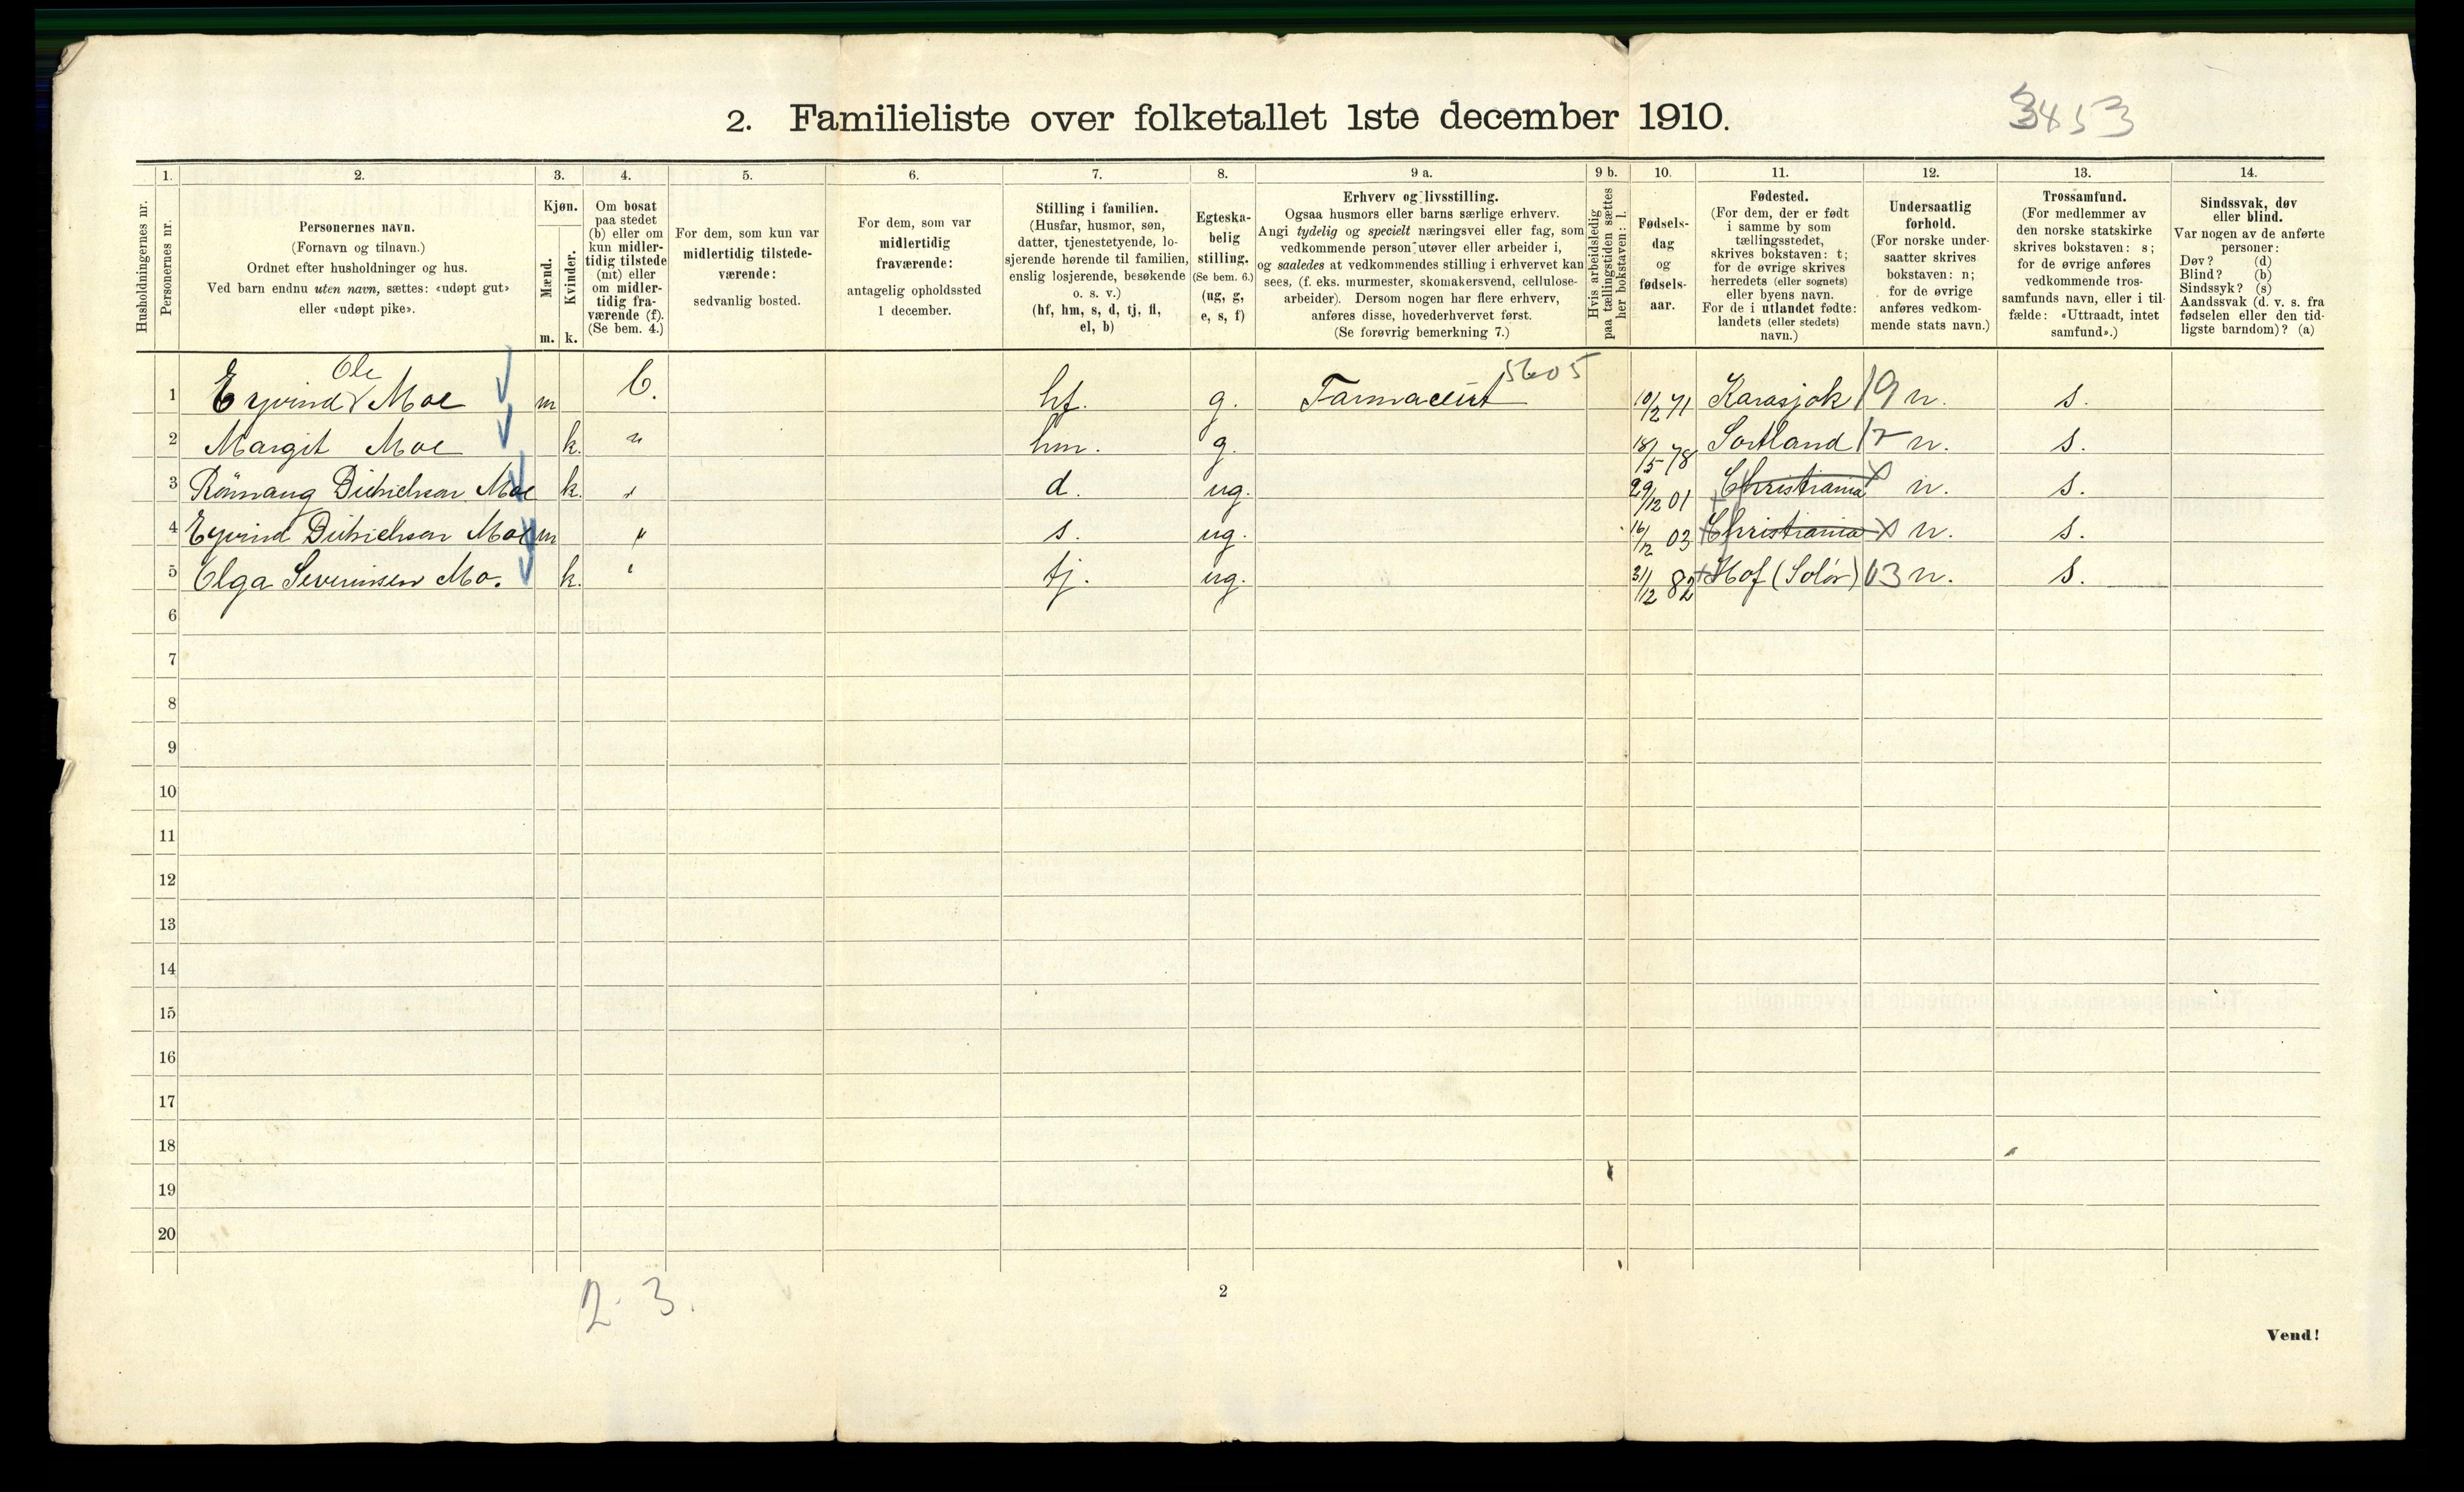 2. Familieliste over folketallet 1ste december 1910.
3453
Husholdningernes nr.
1.
Personernes nr.
2.
Personernes navn.
(Fornavn og tilnavn.)
Ordnet efter husholdninger og hus.
Ved barn endnu uten navn, sættes: «udøpt gut»
eller «udøpt pike».
3.
Kjøn.
Mænd.
Kvinder.
m. k.
4.
Om bosat
paa stedet
(b) eller om
kun midler-
tidig tilstede
(mt) eller
om midler-
tidig fra-
værende (f).
(Se bem. 4.)
5.
For dem, som kun var
midlertidig tilstede-
værende:
sedvanlig bosted.
6.
For dem, som var
midlertidig
fraværende:
antagelig opholdssted
1 december.
7.
Stilling i familien.
(Husfar, husmor, søn,
datter, tjenestetyende, lo-
sjerende hørende til familien,
enslig losjerende, besøkende
o. s. v.)
(hf, hm, s, d, tj, fl,
el, b)
8.
Egteska-
belig
stilling.
(Se bem. 6.)
(ug, g,
e, s, f)
9 a.
Erhverv og livsstilling.
Ogsaa husmors eller barns særlige erhverv.
Angi tydelig og specielt næringsvei eller fag, som
vedkommende person utøver eller arbeider i,
og saaledes at vedkommendes stilling i erhvervet kan
sees, (f. eks. murmester, skomakersvend, cellulose-
arbeider). Dersom nogen har flere erhverv,
anføres disse, hovederhvervet først.
(Se forøvrig bemerkning 7.)
9 b.
Hvis arbeidsledig
paa tællingstiden sættes
her bokstaven: l.
10.
Fødsels-
dag
og
fødsels-
aar.
11.
Fødested.
(For dem, der er født
i samme by som
tællingsstedet,
skrives bokstaven: t;
for de øvrige skrives
herredets (eller sognets)
eller byens navn.
For de i utlandet fødte:
landets (eller stedets)
navn.)
12.
Undersaatlig
forhold.
(For norske under-
saatter skrives
bokstaven: n;
for de øvrige
anføres vedkom-
mende stats navn.)
13.
Trossamfund.
(For medlemmer av
den norske statskirke
skrives bokstaven: s;
for de øvrige anføres
vedkommende tros-
samfunds navn, eller i til-
fælde: «Uttraadt, intet
samfund».)
14.
Sindssvak, døv
eller blind.
Var nogen av de anførte
personer:
Døv? (d)
Blind? (b)
Sindssyk? (s)
Aandssvak (d. v. s. fra
fødselen eller den tid-
ligste barndom)? (a)
Ole
1 Eyvind Moe m b. hf. g. Farmaceut 5605 10/2 71 Karasjok 19 n. s.
2 Margit Moe k. " hm. g. 18/5 78 Sortland 17 n. s.
3 Rönnaug Dietrichson Moe k. " d. ug. 29/12 01 t Christiania x n. s.
4 Eyvind Dietrichson Moe m " s. ug. 16/12 03 t Christiania x n. s.
5 Olga Severinsen Mo. k. " tj. ug. 31/12 82 Hof (Solör) 03 n. s.
6
7
8
9
10
11
12
13
14
15
16
17
18
19
20
2. 3.
2
Vend!